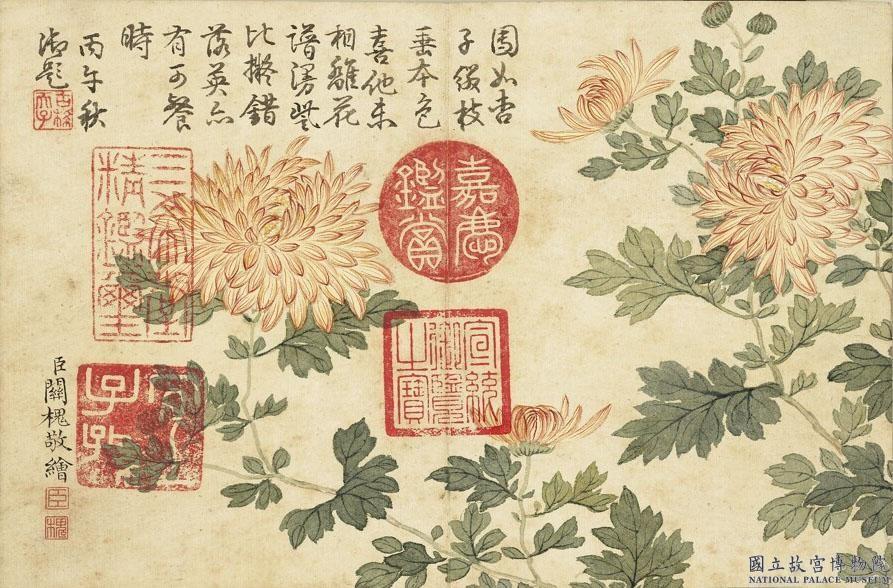 圓如杏
子綴枝
垂本色
喜他未
相離花
譜漫
比擬錯
落英亦
有可餐
時
丙午秋
御題
古稀天子
嘉慶鑑賞
三希堂精鑑璽
宣統御覽之寶
宜子孫
臣關槐敬繪
臣
槐
國立故宮博物院
NATIONAL PALACE MUSEUM